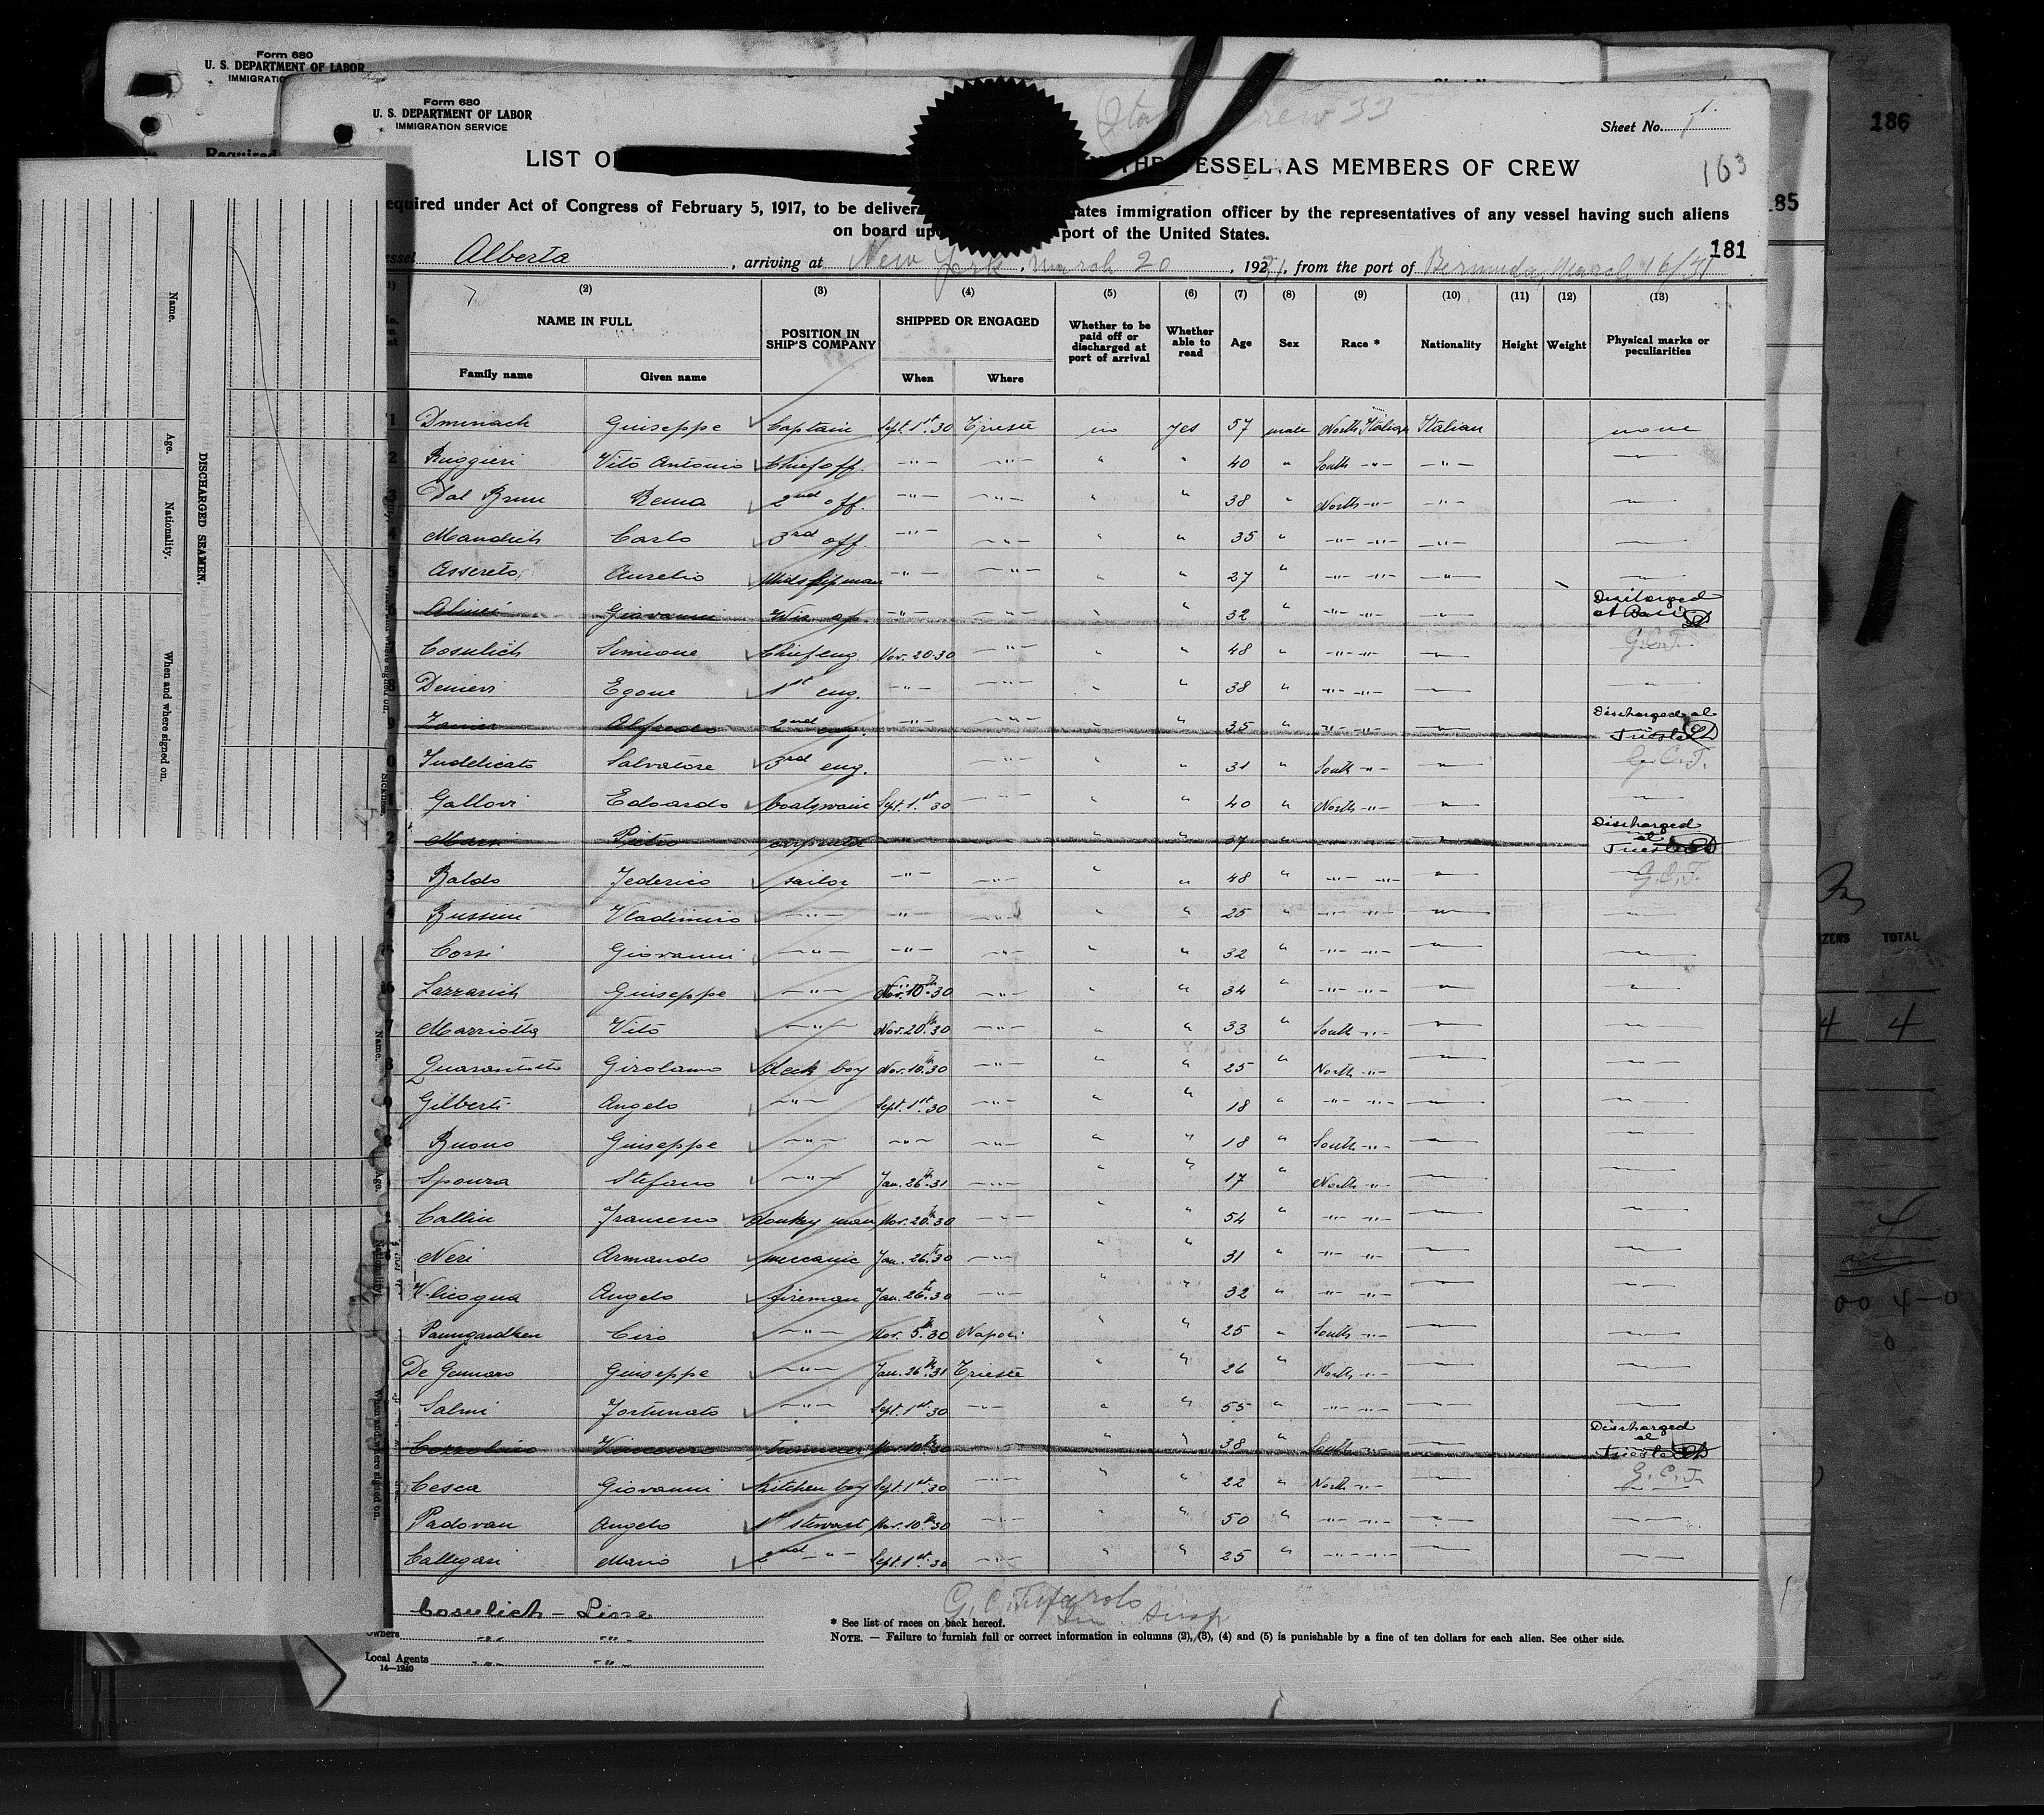 Form 680
U. S. DEPARTMENT OF LABOR
IMMIGRATIO
Required
186
185
Form 680
U. S. DEPARTMENT OF LABOR
IMMIGRATION SERVICE
Crew 33
Sheet No. 1
163
LIST O THE VESSEL AS MEMBERS OF CREW
equired under Act of Congress of February 5, 1917, to be deliver ates immigration officer by the representatives of any vessel having such aliens
on board upo port of the United States.
181
essel Alberta , arriving at New York , March 20 , 1931, from the port of Bermuda, March 16/31
(2) (3) (4) (5) (6) (7) (8) (9) (10) (11) (12) (13)
NAME IN FULL POSITION IN SHIP'S COMPANY SHIPPED OR ENGAGED Whether to be paid off or discharged at port of arrival Whether able to read Age Sex Race * Nationality Height Weight Physical marks or peculiarities
Family name Given name When Where
1 Giuseppe Captain Sept. 1st 30 Trieste no yes 57 male North Italian Italian none
2 Ruggieri Vito Antonio Chief off. -"- -"- " " 40 " South -"- -"-
Dal Brun 2nd off. -"- -"- " " 38 " North -"- -"-
4 Mandich Carlo 3rd off. -"- -"- " 35 " -"- -"- -"-
5 Assereto Aurelio Midshipman -"- -"- " " 27 " -"- -"- -"-
Giovanni -"- -"- " " 32 " -"- -"- " Discharged at Bari
Cosulich Simeone Chief eng. Nov. 20.30 -"- " " 48 " -"- -"- G.C.T.
8 Egone 1st eng. -"- -"- " " 38 " -"- -"-
9 Alfredo 2nd eng. -"- -"- " " 35 " -"- -"- Discharged at Trieste
0 Indelicato Salvatore 3rd eng. -"- " " 31 " South -"- G.C.T.
Edoardo boatswain Sept. 1st 30 " " 40 " North -"-
2 Pietro " " 37 " Discharged at Trieste
3 Baldo Federico sailor -"- -"- " " 48 " -"- -"- G.C.T.
Bussini Vladimiro -"- -"- -"- " " 25 " -"- -"-
Corsi Giovanni -"- -"- -"- " " 32 " -"- -"-
16 Lazzarich Giuseppe -"- Nov. 10th 30 -"- " " 34 " -"- -"-
7 Mazziotta Vito -"- Nov. 20th 30 -"- " " 33 " South -"-
8 Quarantotto Girolamo deck boy Nov. 10th 30 -"- " " 25 " North -"-
9 Gilberti Angelo -"- Sept. 1st 30 -"- " " 18 " -"- -"-
Buono Giuseppe -"- -"- -"- " " 18 " South -"-
Sponza Stefano -"- Jan. 26th 31 -"- " " 17 " North -"-
Callin Francesco donkey man Nov. 20th 30 -"- " " 54 " -"- -"-
Neri Armando meccanic Jan. 26th 30 -"- " " 31 " -"- -"-
Angelo fireman Jan. 26th 30 -"- " " 32 " -"- -"-
Paumgardhen Ciro -"- Nov. 5th 30 Napoli " " 25 " South -"-
De Gennaro Giuseppe -"- Jan. 26th 31 Trieste " " 26 " North -"-
Salmi Fortunato -"- Sept. 1st 30 -"- " " 55 " -"- -"-
Cozzolino Vincenzo Nov. 10th 30 " " 38 " South -"- Discharged at Trieste
Cesca Giovanni Kitchen boy Sept. 1st 30 -"- " " 22 " North -"- G.C.T.
Padovan Angelo 1st stewart Nov. 10th 30 -"- " " 50 " -"- -"-
Callegari Mario 2nd -"- Sept. 1st 30 -"- " " 25 " -"- -"-
Cosulich - Line
Owners -"- -"-
Local Agents -"- -"-
14—1240
* See list of races on back hereof.
NOTE. — Failure to furnish full or correct information in columns (2), (3), (4) and (5) is punishable by a fine of ten dollars for each alien. See other side.
DISCHARGED SEAMEN.
Name.
Age.
Nationality.
When and where signed on.
Name.
Age.
Nationality.
When and where signed on.
IZENS TOTAL
4 4
4